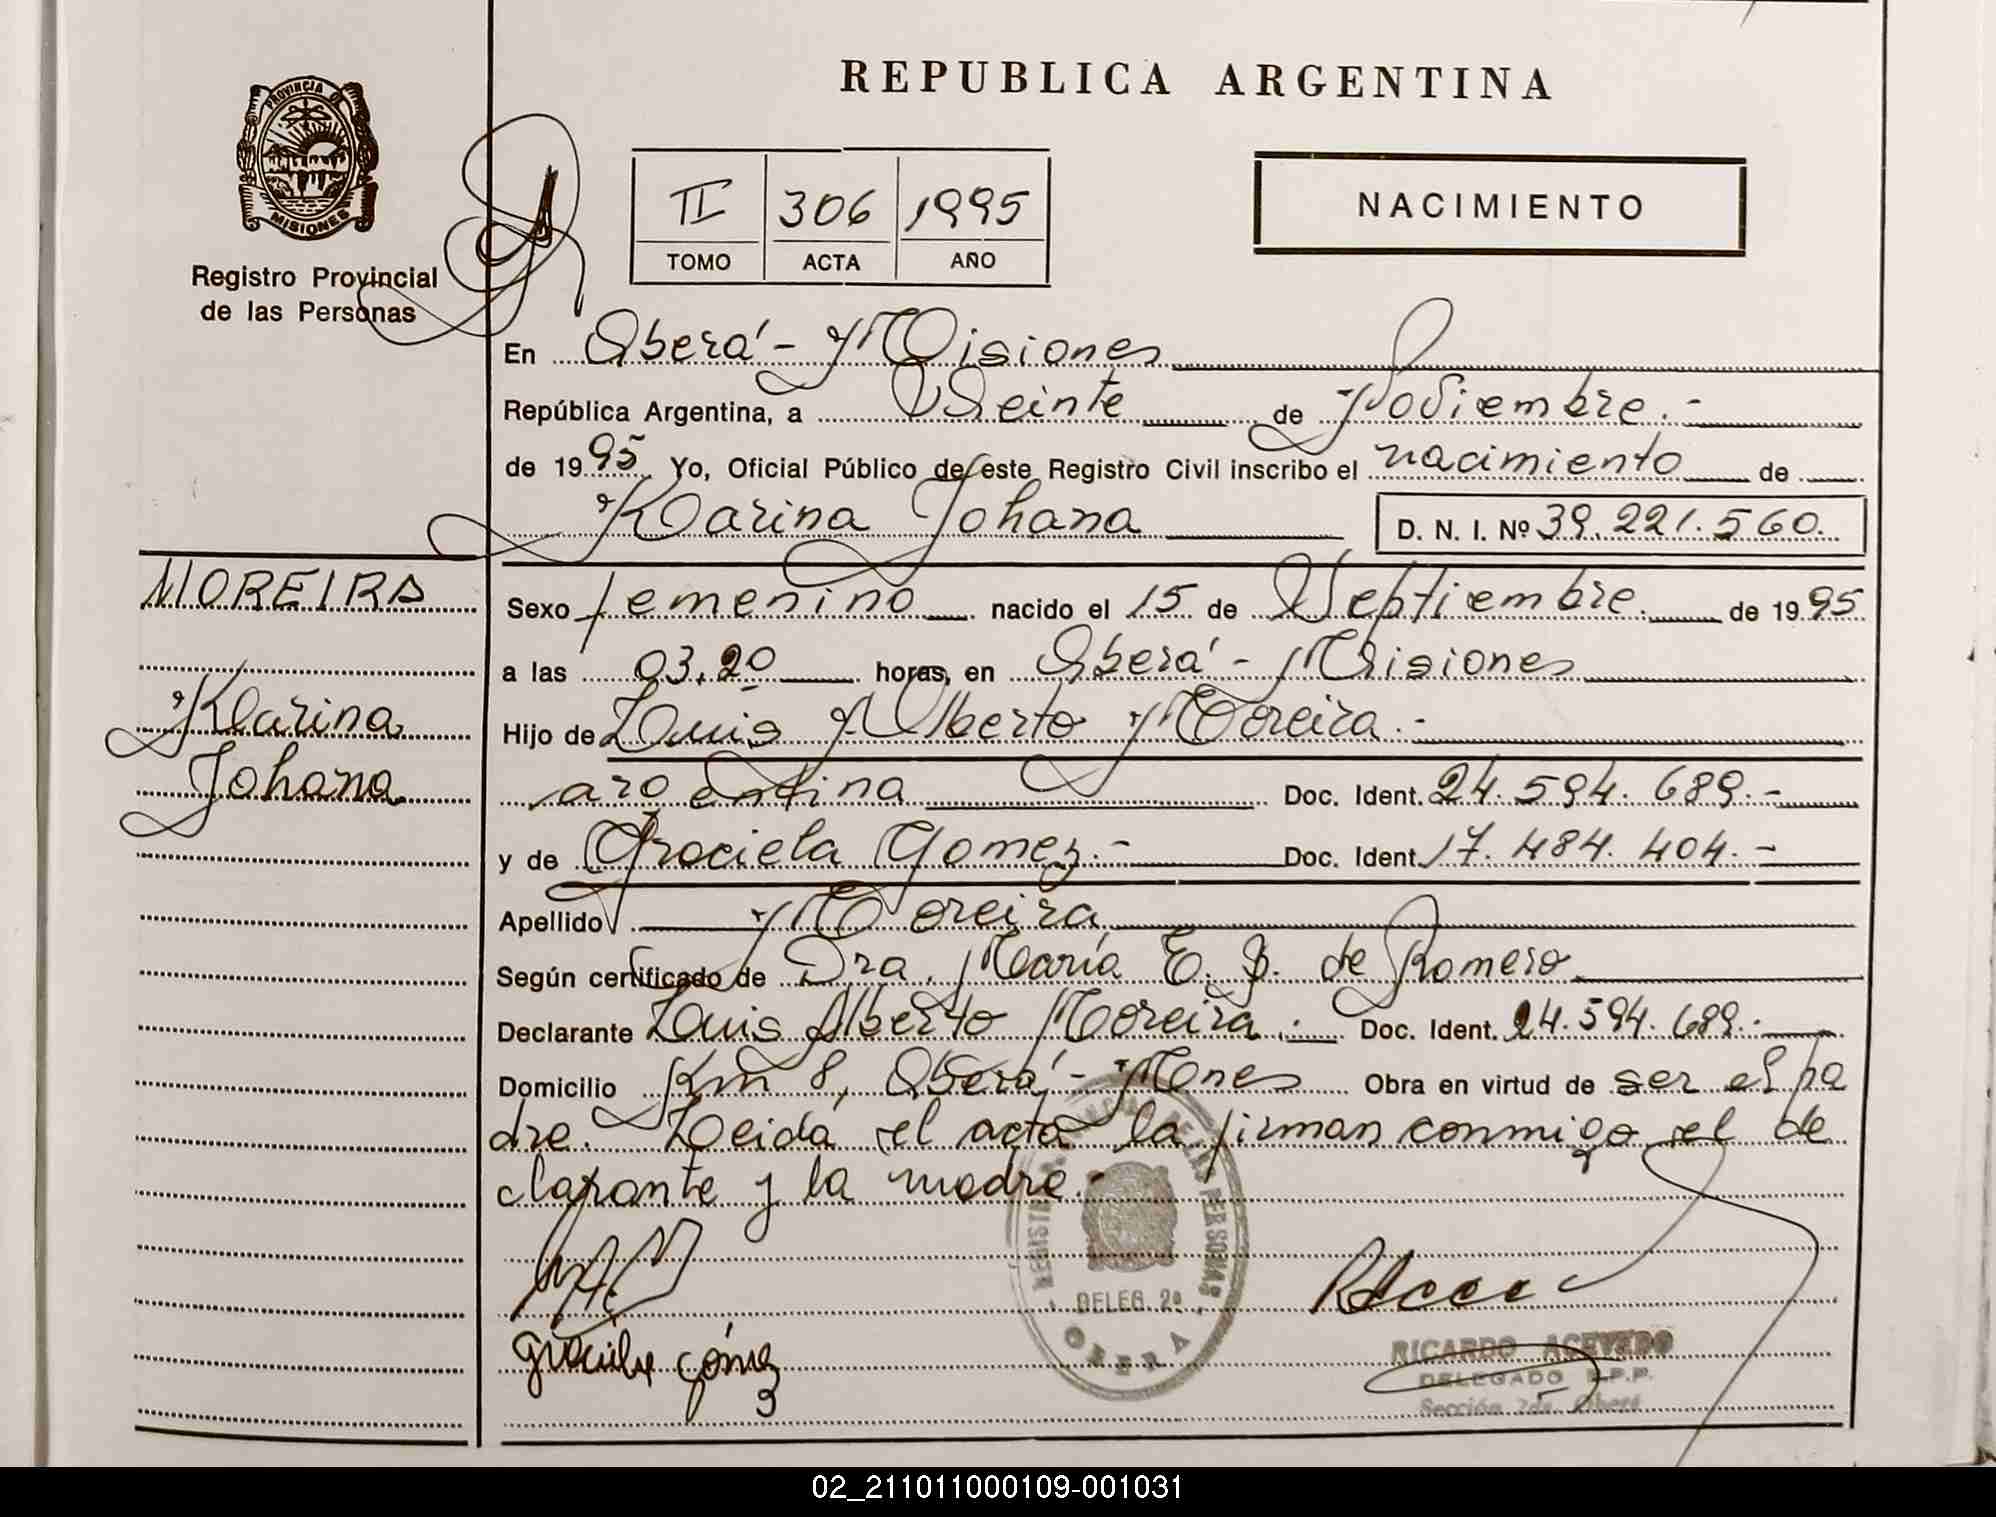 REPUBLICA ARGENTINA
PROVINCIA D
MISIONES
Registro Provincial
de las Personas
II 306 1995
TOMO ACTA AÑO
NACIMIENTO
En Oberá - Misiones
República Argentina, a Veinte de Noviembre.-
de 1995 Yo, Oficial Público de este Registro Civil inscribo el nacimiento de
Karina Johana D. N. I. Nº 39.221.560.
MOREIRA
Karina
Johana
Sexo femenino nacido el 15 de Septiembre. de 1995
a las 03,20 horas, en Oberá - Misiones
Hijo de Luis Alberto Moreira.-
argentina Doc. Ident. 24.594.689.-
y de Graciela Gomez.- Doc. Ident. 17.484.404.-
Apellido Moreira
Según certificado de Dra. María E. B. de Romero
Declarante Luis Alberto Moreira.- Doc. Ident. 24.594.689.-
Domicilio Km 8, Oberá - Mnes Obra en virtud de ser el pa
dre. Leída el acta la firman conmigo el de
clarante y la madre.-
REGISTRO PROVINCIAL DE LAS PERSONAS
DELEG. 2ª
OBERA
graciela gómez
RICARDO ACEVEDO
DELEGADO R.P.P.
Sección 2da. Oberá
02_211011000109-001031